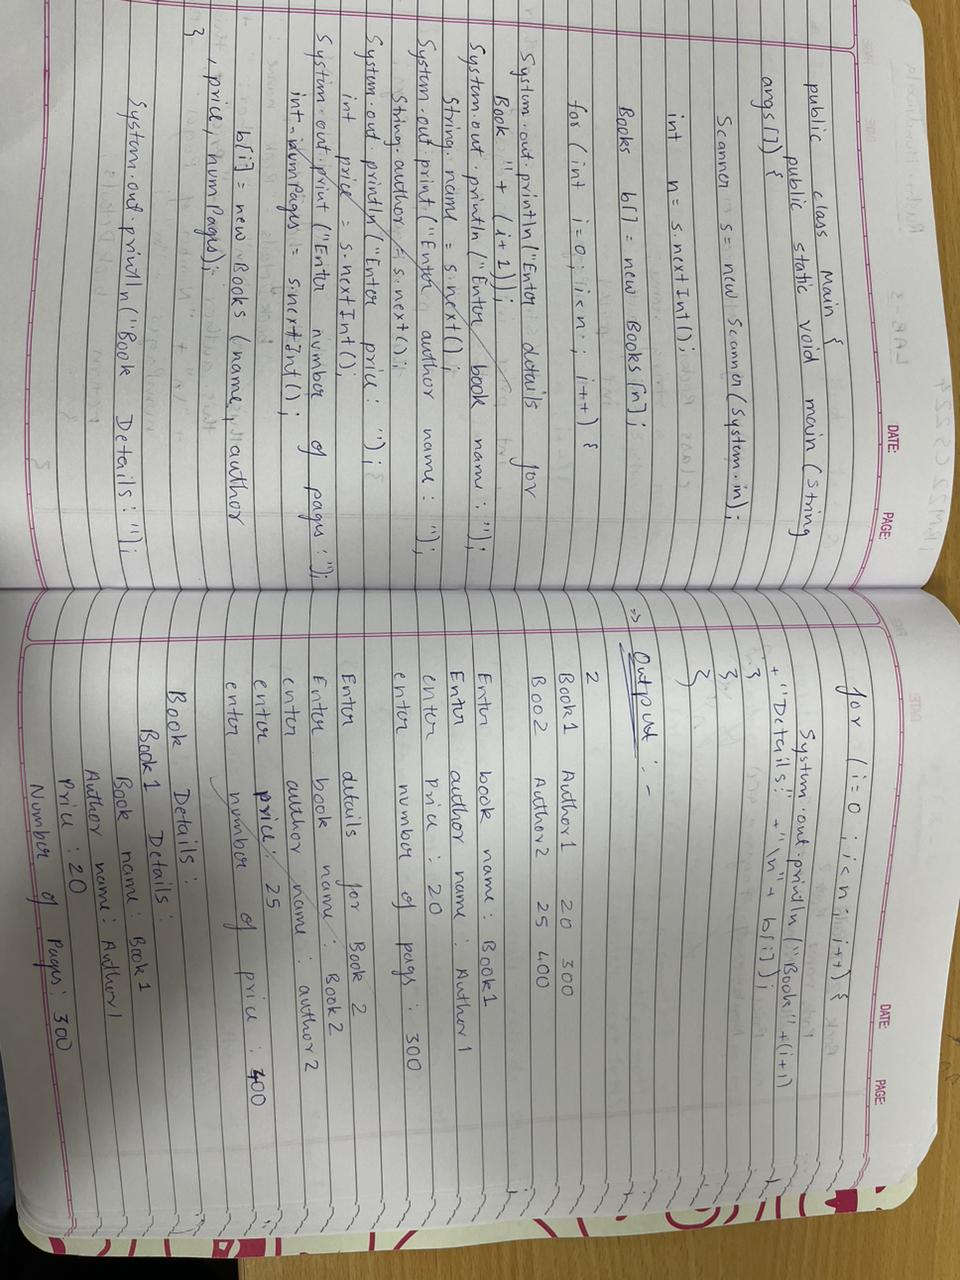 DATE: PAGE:
public class Main {
public static void main (String
args[]) {
Scanner s = new Scanner (System.in);
int n = s.nextInt();
Books b[] = new Books [n];
for ( int i=0 ; i<n ; i++) {
System.out.println("Enter details for
Book " + (i+1));
System.out.println ("Enter book name : ");
String name = s.next();
System.out.print ("Enter author name : ");
String author = s.next();
System.out.println ("Enter price : ");
int price = s.nextInt();
System.out.print ("Enter number of pages : ");
int numPages = s.nextInt();
b[i] = new Books (name, author
, price, numPages);
}
System.out.println ("Book Details : ");
DATE: PAGE:
for (i=0 ; i<n ; i++) {
System.out.println ("Book" + (i+1)
+ "Details:" + "\n" + b[i]);
}
}
}
=> Output :-
2
Book1 Author1 20 300
Boo2 Author2 25 400
Enter book name : Book1
Enter author name : Author1
enter Price : 20
enter number of pags : 300
Enter details for Book 2
Enter book name : Book2
enter author name : author2
enter price : 25
enter number of price : 400
Book Details :
Book1 Details :
Book name : Book1
Author name : Author1
Price : 20
Number of Pages : 300